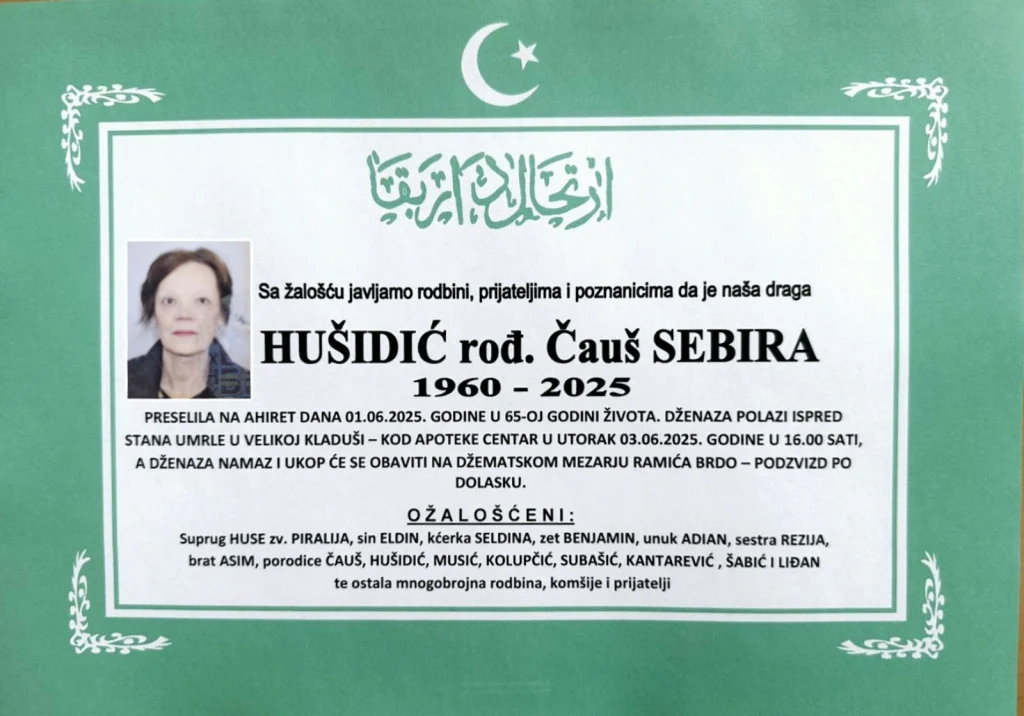 ارتحال دار بقا
Sa žalošću javljamo rodbini, prijateljima i poznanicima da je naša draga
HUŠIDIĆ rođ. Čauš SEBIRA
1960 – 2025
PRESELILA NA AHIRET DANA 01.06.2025. GODINE U 65-OJ GODINI ŽIVOTA. DŽENAZA POLAZI ISPRED
STANA UMRLE U VELIKOJ KLADUŠI – KOD APOTEKE CENTAR U UTORAK 03.06.2025. GODINE U 16.00 SATI,
A DŽENAZA NAMAZ I UKOP ĆE SE OBAVITI NA DŽEMATSKOM MEZARJU RAMIĆA BRDO – PODZVIZD PO
DOLASKU.
OŽALOŠĆENI:
Suprug HUSE zv. PIRALIJA, sin ELDIN, kćerka SELDINA, zet BENJAMIN, unuk ADIAN, sestra REZIJA,
brat ASIM, porodice ČAUŠ, HUŠIDIĆ, MUSIĆ, KOLUPČIĆ, SUBAŠIĆ, KANTAREVIĆ , ŠABIĆ I LIĐAN
te ostala mnogobrojna rodbina, komšije i prijatelji